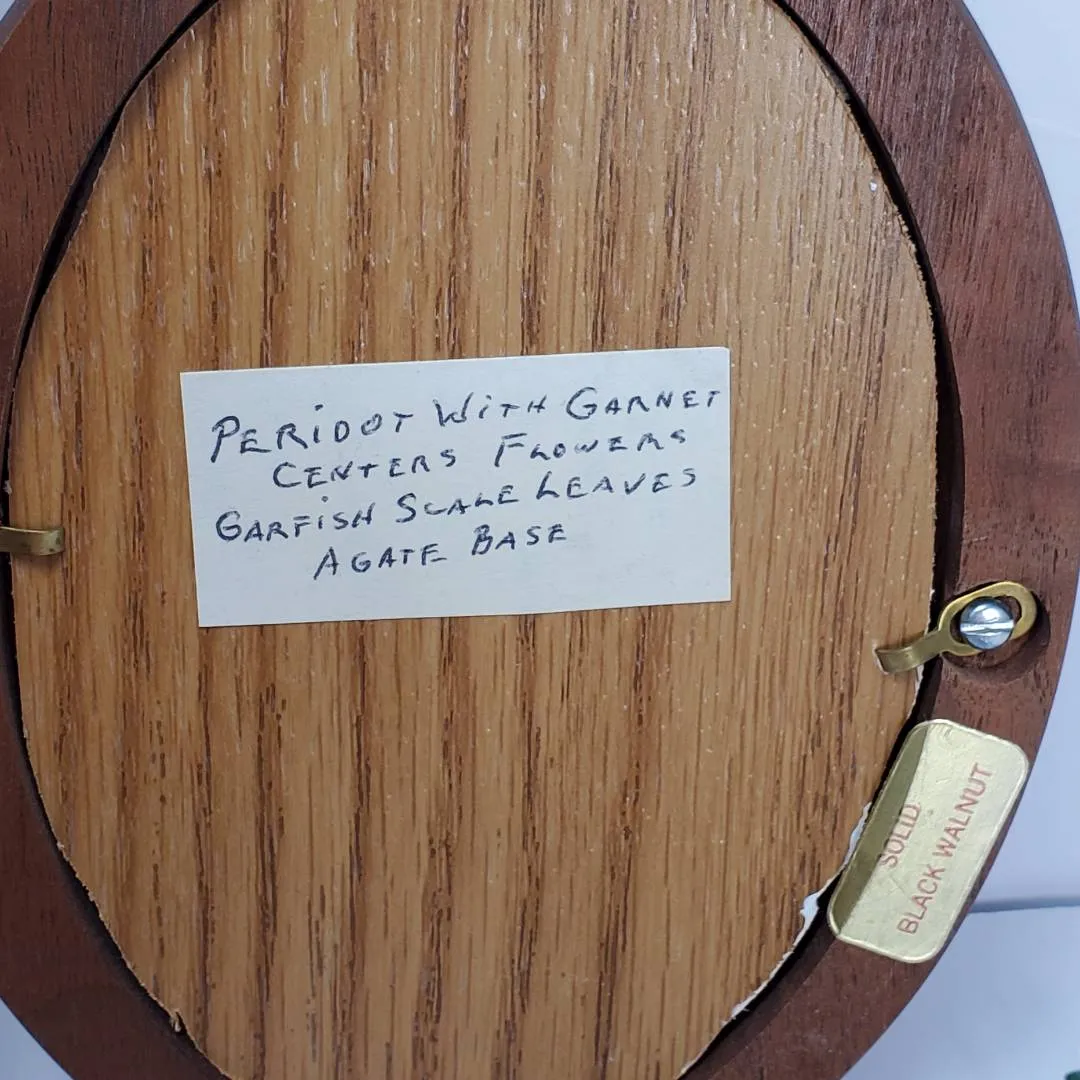 PERIDOT WITH GARNET
CENTERS FLOWERS
GARFISH SCALE LEAVES
AGATE BASE
SOLID
BLACK WALNUT